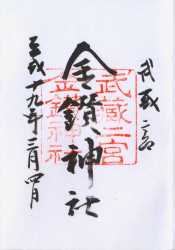 武蔵二宮
金鑚神社
武蔵二宮
金鑚神社
平成十九年二月四日